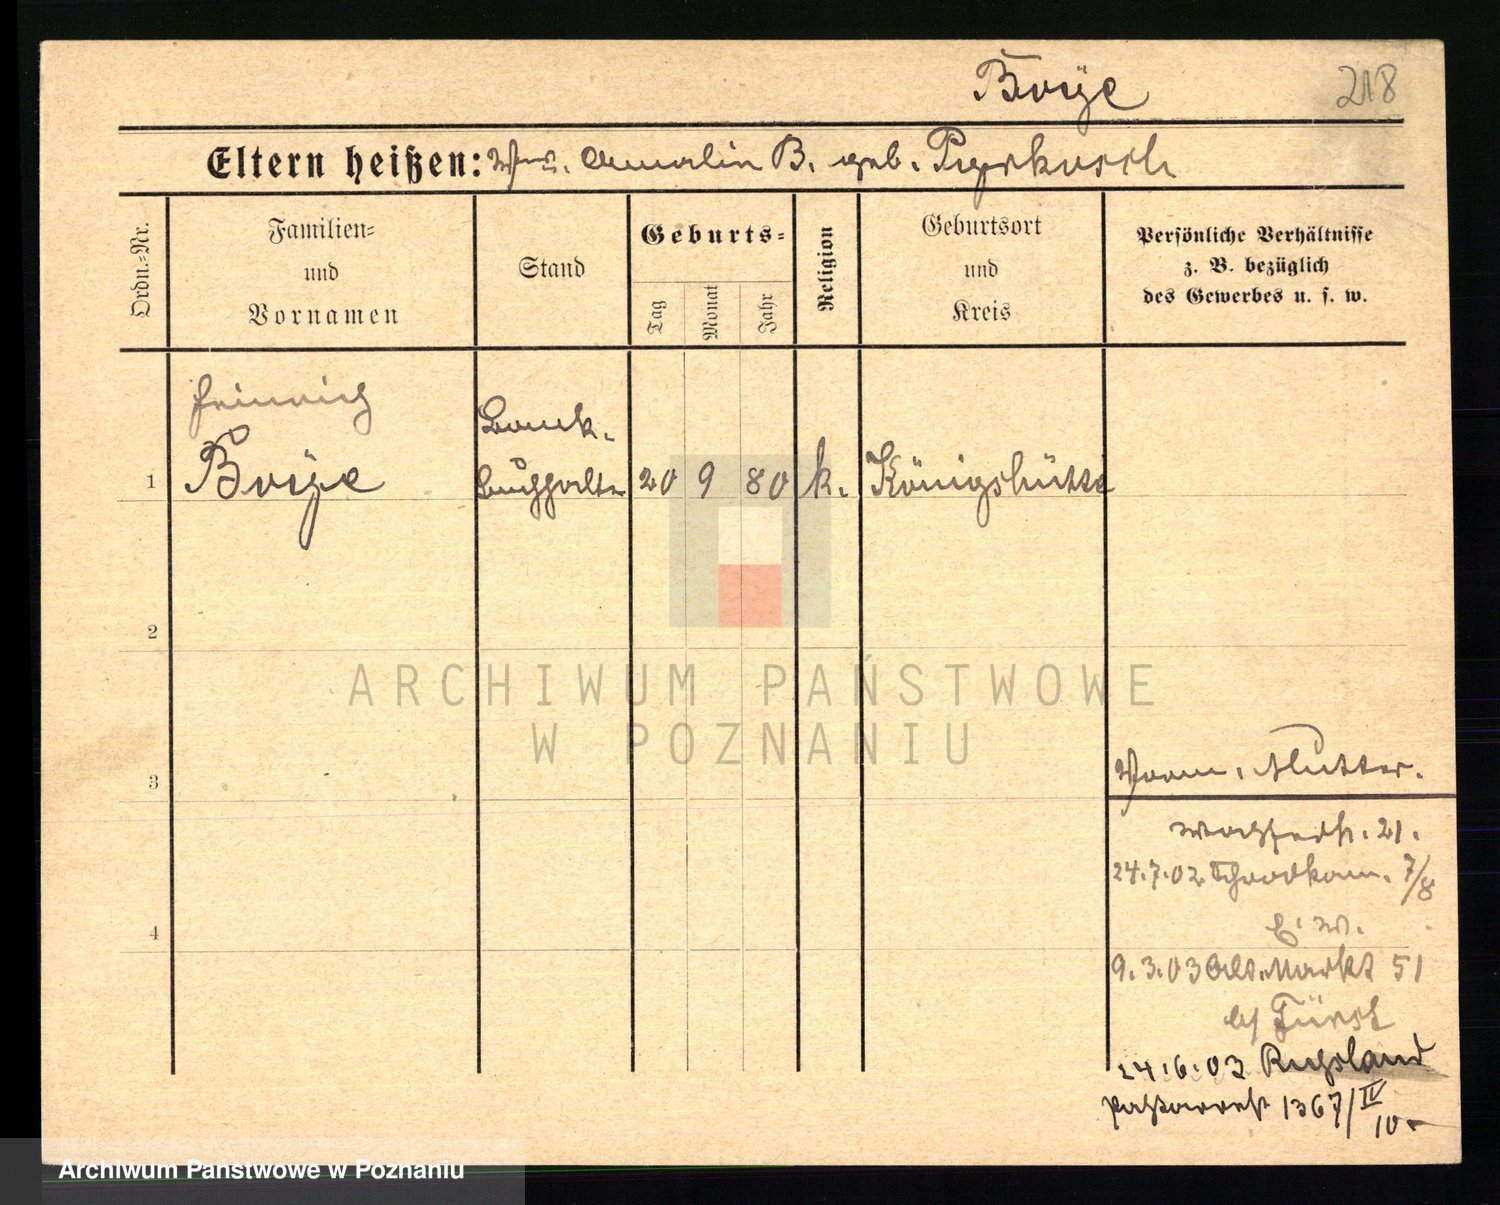 Boÿe 218
Eltern heißen: Ww. Amalie B. geb. Pyrkosch
Ordn.-Nr.
Familien-
und
Vornamen
Stand
Geburts-
Tag
Monat
Jahr
Religion
Geburtsort
und
Kreis
Persönliche Verhältnisse
z. B. bezüglich
des Gewerbes u. s. w.
Heinrich
Bank-
1 Boÿe Buchhalter 20 9 80 k. Königshütte
2
ARCHIWUM PAŃSTWOWE
W POZNANIU
3
Mutter.
21.
24.7.02. 7/8
4
9.3.03 Alt. Markt 51
b/ Fürst
24.6.03 Russland
1367/IV
10
Archiwum Państwowe w Poznaniu